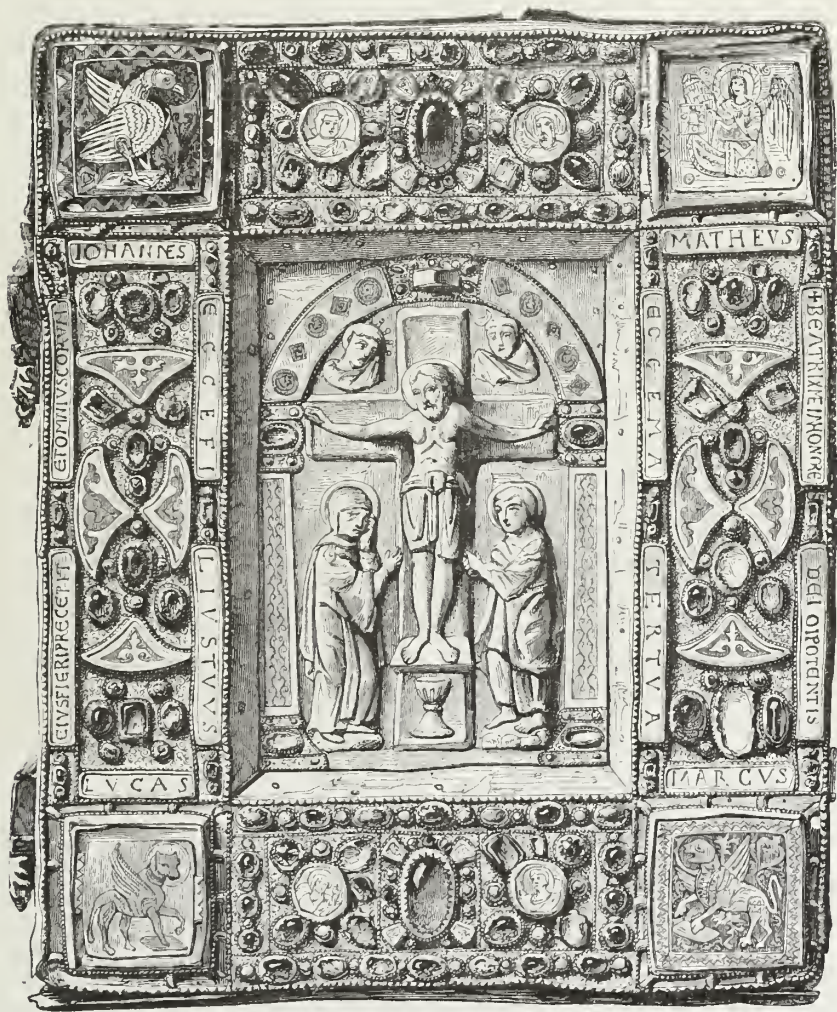 IOHANNES
MATHEVS
ETOMNIUSCORVM
ECCEFI
ECCEMA
+BEATRIXEINHONRE
EIVSFIERIPRECEPIT
LIVSTVVS
TERTVA
DEIOIPOTENTIS
LVCAS
MARCVS